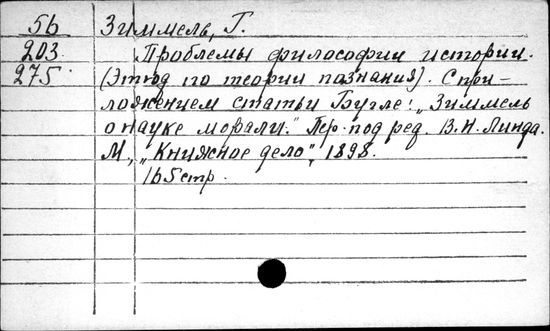 56 Зиммель, Г.
203 Проблемы философии истории.
275 (Этюд по теории познания). С при-
ложением статьи Бугле: „Зиммель
о науке морали." Пер. под ред. В.Н. Линда.
М., „Книжное дело", 1898.
165 стр.